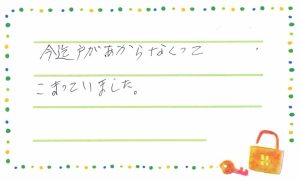 今迄戸があからなくって
こまっていました。